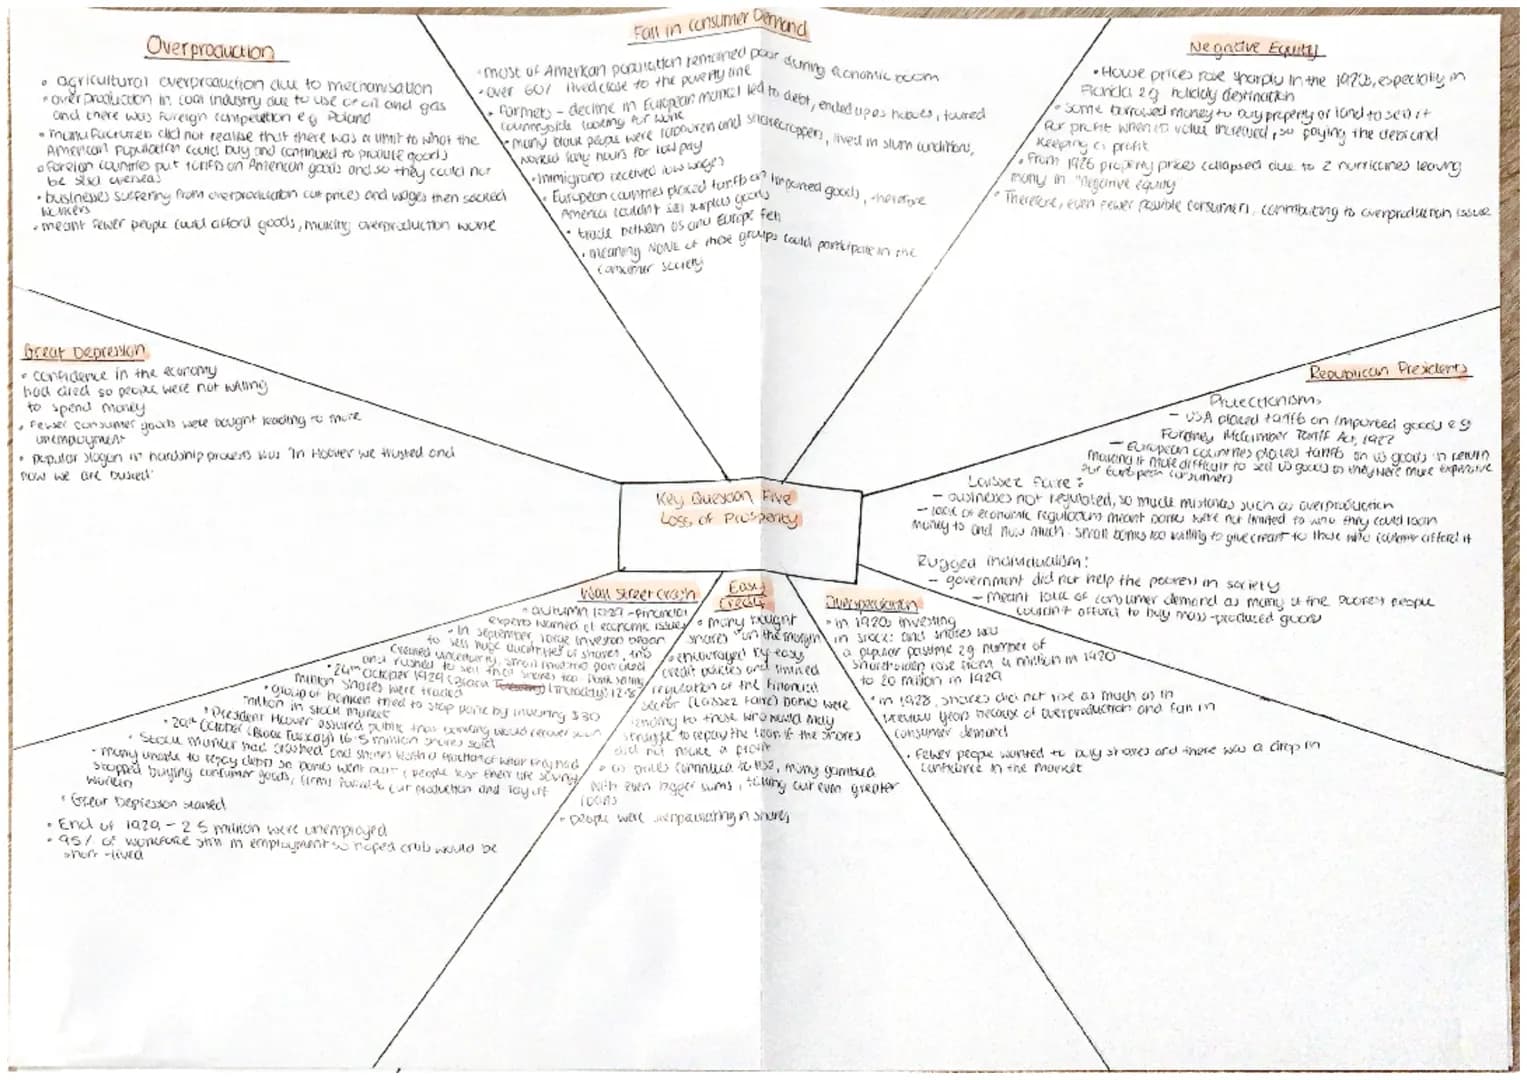 Overproduction
• agricultural overproduction due to mechanisation
• overproduction in coal industry due to use of oil and gas
and there was foreign competition eg Poland
• manufacturers did not realise that there was a limit to what the
American population could buy and continued to produce goods
• foreign countries put tariffs on American goods and so they could not
be sold overseas
• businesses suffering from overproduction cut prices and wages then sacked
workers
• meant fewer people could afford goods, making overproduction worse
Fall in Consumer Demand
• most of American population remained poor during economic boom
• over 60% lived close to the poverty line
• farmers - decline in European market led to debt, ended up as hobos, toured
countryside looking for work
• many black people were labourers and sharecroppers, lived in slum conditions,
worked long hours for low pay
• immigrants received low wages
• European countries placed tariffs on imported goods, therefore
America couldn't sell surplus goods
• trade between US and Europe fell
• meaning NONE of these groups could participate in the
consumer society
Negative Equity
• House prices rose sharply in the 1920s, especially in
Florida eg holiday destination
• some borrowed money to buy property or land to sell it
for profit when its value increased, so paying the debt and
keeping a profit
• From 1926 property prices collapsed due to 2 hurricanes leaving
many in "negative equity"
• Therefore, even fewer possible consumers, contributing to overproduction issue
Great Depression
• confidence in the economy
had died so people were not willing
to spend money
• Fewer consumer goods were bought leading to more
unemployment
• popular slogan in hardship protests was 'In Hoover we trusted and
now we are busted'
Republican Presidents
Protectionism:
- USA placed tariffs on imported goods eg
Fordney McCumber Tariff Act, 1922
- European countries placed tariffs on US goods in return
making it more difficult to sell US goods as they were more expensive
for European consumers
Laissez faire:
- businesses not regulated, so made mistakes such as overproduction
- lack of economic regulations meant banks were not limited to who they could loan
money to and how much. small banks too willing to give credit to those who couldn't afford it
Rugged individualism:
- government did not help the poorest in society
- meant lack of consumer demand as many of the poorest people
couldn't afford to buy mass-produced goods
Key Question Five
Loss of Prosperity
Wall Street Crash
• autumn 1929 - financial
experts warned of economic issues
• In September, large investors began
to sell huge quantities of shares, this
created uncertainty, small investors panicked
and rushed to sell their shares too. Panic selling
• 24th October 1929 (Black Thursday) 12.8
million shares were traded
• group of bankers tried to stop panic by investing $30
million in stock market
• President Hoover assured public that banking would recover soon
• 29th October (Black Tuesday) 16.5 million shares sold
• Stock market had crashed and shares worth a fraction of what they had
• many unable to repay debts so banks went bust, people lost their life savings
stopped buying consumer goods, firms forced to cut production and lay off
workers
• Great Depression started
• End of 1929 - 2.5 million were unemployed
• 95% of workforce still in employment so hoped crisis would be
short-lived
Easy
Credit
• many bought
shares "on the margin"
• encouraged by easy
credit policies and limited
regulation of the financial
sector (Laissez Faire) banks were
lending to those who would may
struggle to repay the loan if the shares
did not make a profit
• as prices continued to rise, many gambled
with even bigger sums, taking out even greater
loans
• people were overspeculating in shares
Overspeculation
• in 1920s investing
in stocks and shares was
a popular pastime eg number of
shareholders rose from 4 million in 1920
to 20 million in 1929
• in 1928, shares did not rise as much as in
previous years because of overproduction and fall in
consumer demand
• Fewer people wanted to buy shares and there was a drop in
confidence in the market